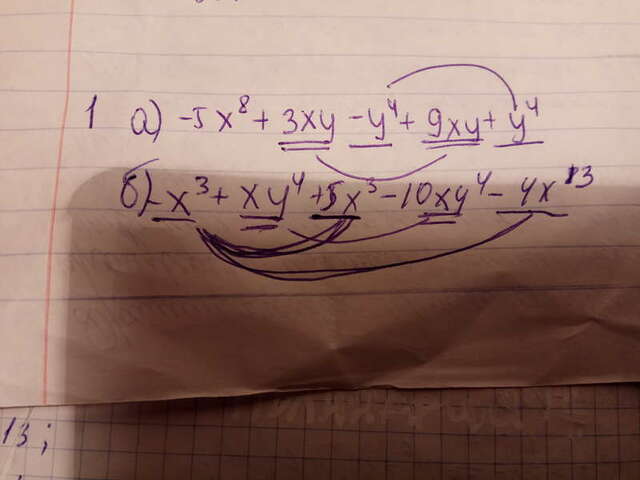 1 а) -5x⁸ + 3xy - y⁴ + 9xy + y⁴
б) -x³ + xy⁴ + 5x³ - 10xy⁴ - 4x³
13;